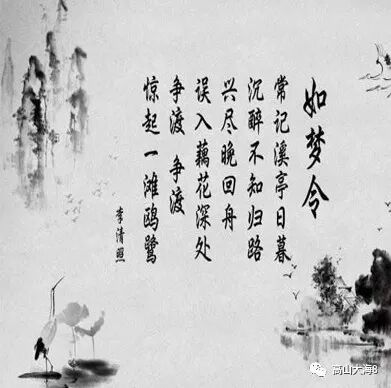 如梦令
常记溪亭日暮
沉醉不知归路
兴尽晚回舟
误入藕花深处
争渡 争渡
惊起一滩鸥鹭
李清照
高山大海8